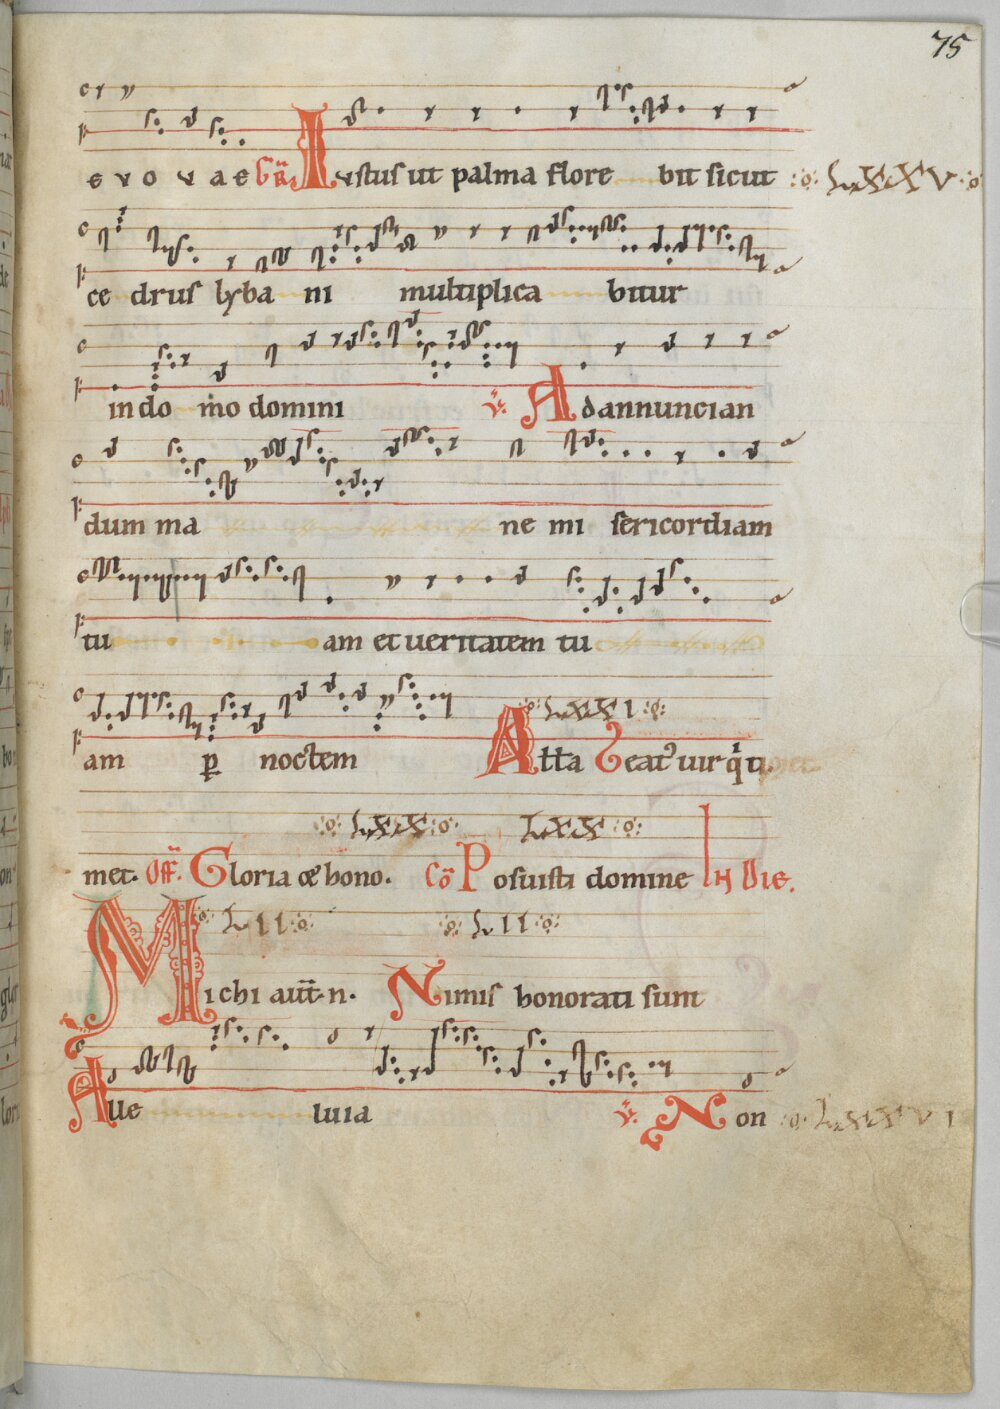 75
e v o v a e Gr̄. Iustus ut palma flore bit sicut LXXXV
ce drus lyba ni multiplica bitur
in do mo domini ℣. Adannuncian
dum ma ne mi sericordiam
tu am et ueritatem tu
am p̲ noctem Alła Beat᷒ uir q̇ ti LXXI
met. Off̄. Gloria & hono. Cō Posuisti domine In Die.
LXX LXX
Michi aut̄. n. Nimis honorati sunt
LII LII
Alle luia ℣. Non LXXXVI